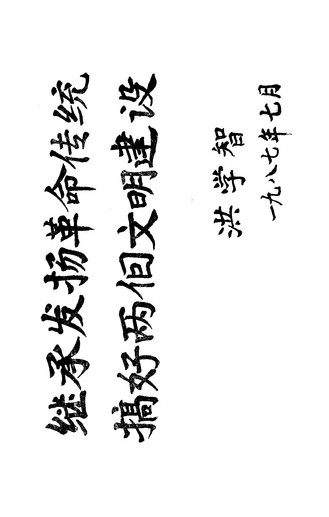 继承发扬革命传统
搞好两个文明建设
洪学智
一九八七年七月